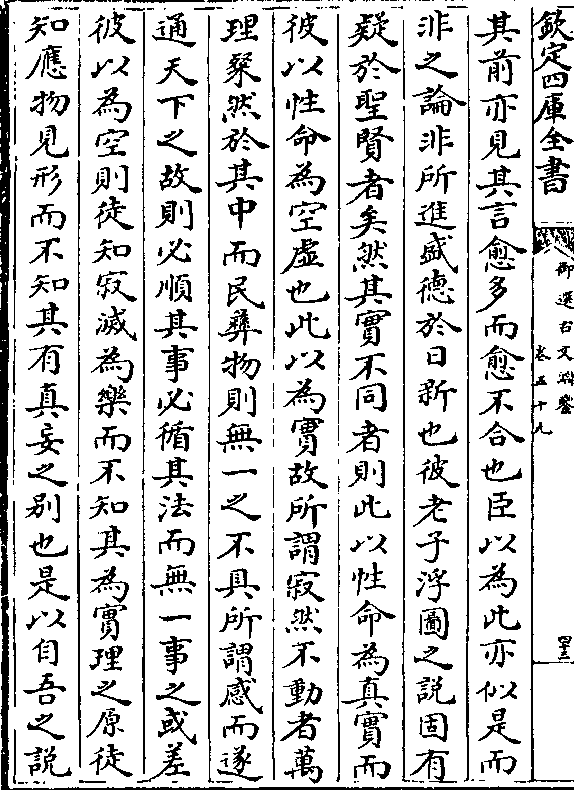 欽定四庫全書
御選古文淵鑒
卷五十九
四十三
其前亦見其言愈多而愈不合也臣以為此亦似是而
非之論非所進盛德於日新也彼老子浮圖之說固有
疑於聖賢者矣然其實不同者則此以性命為真實而
彼以性命為空虛也此以為實故所謂寂然不動者萬
理粲然於其中而民彝物則無一之不具所謂感而遂
通天下之故則必順其事必循其法而無一事之或差
彼以為空則徒知寂滅為樂而不知其為實理之原徒
知應物見形而不知其有真妄之別也是以自吾之説